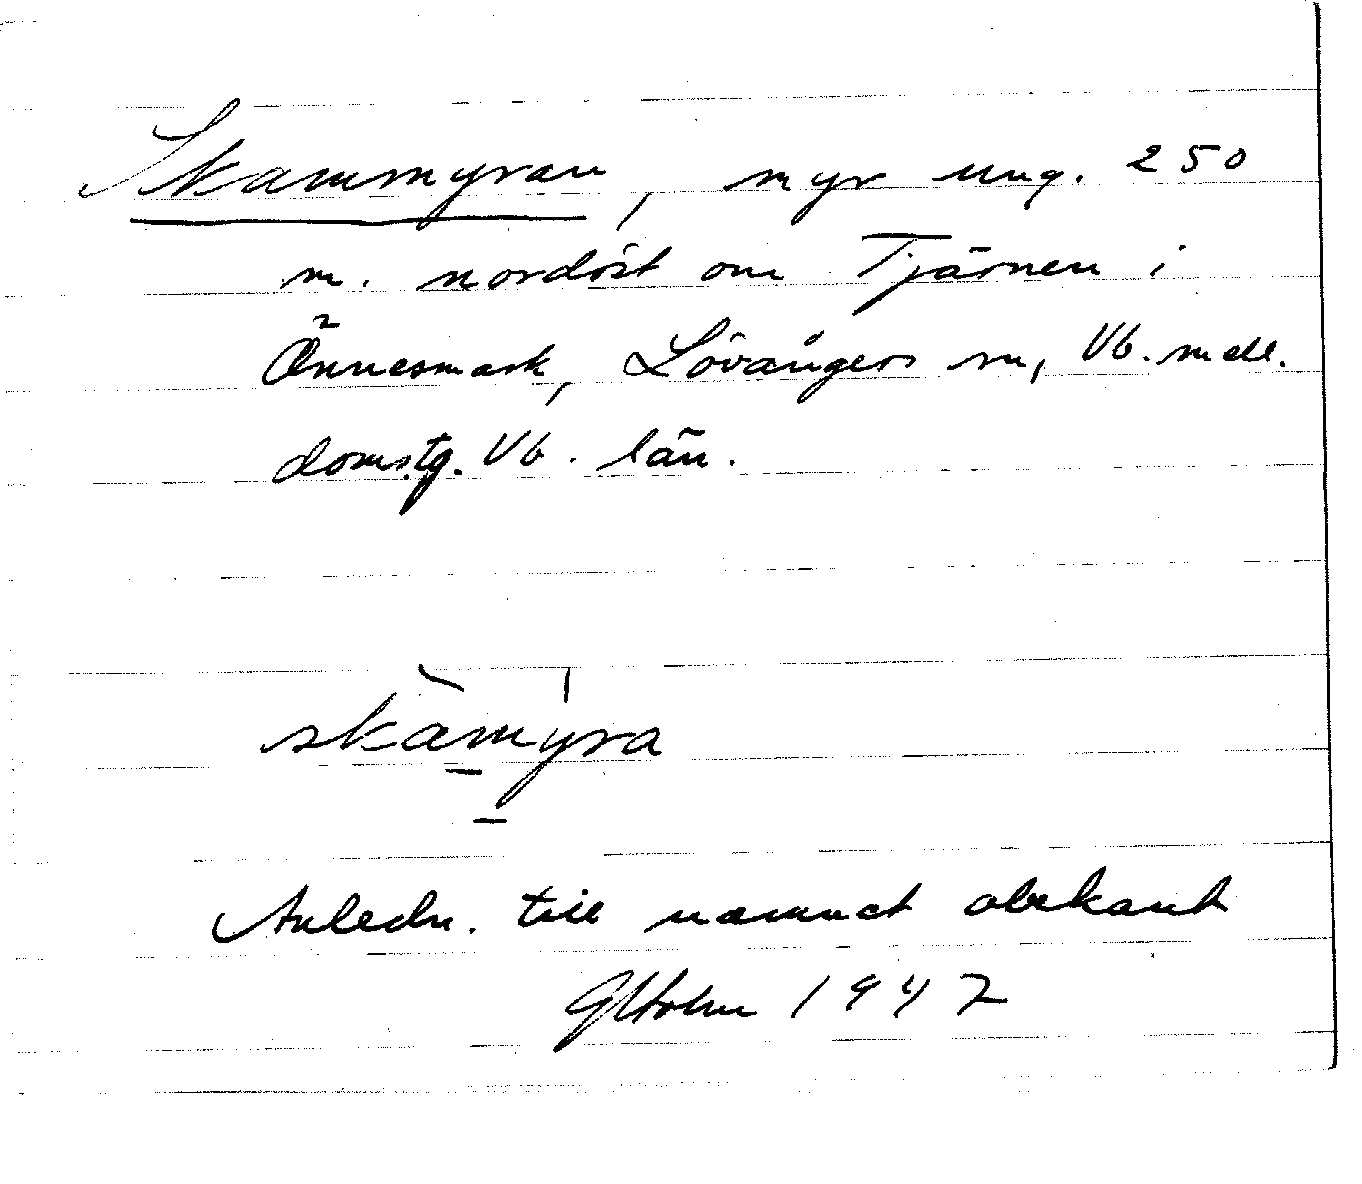 Skammyran, myr ung. 250
m. nordöst om Tjärnen i
Önnesmark, Lövångers sn, Vb. mell.
domstg. Vb. län.
skàmyra
Anledn. till namnet obekant
GHolm 1947